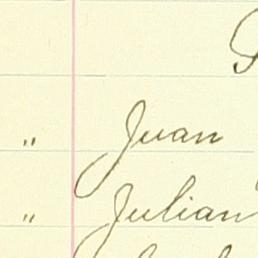 " Juan
" Julian